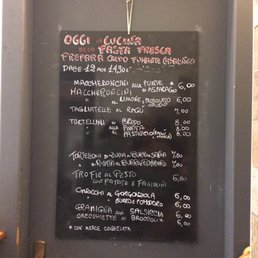 OGGI LA CUCINA
DELLA PASTA FRESCA
PREPARA CALDO FUMANTE
DALLE 12 ALLE 14.30
MACCHERONCINI ALLE PUNTE D'ASPARAGO 6,00
MACCHERONCINI
AL LIMONE, PROSCIUTTO CRUDO 6,00
TAGLIATELLE AL RAGÙ 7,00
TORTELLINI IN BRODO 8,00
" ALLA PANNA 8,00
" PASTICCIATI 8,00
TORTELLONI DI ZUCCA BURRO E SALVIA 7,00
" DI RICOTTA BURRO E POMODORO 7,00
TROFIE AL PESTO
CON PATATE E FAGIOLINI 6,00
GNOCCHI AL GORGONZOLA 6,00
BURRO E POMODORO 6,00
GRAMIGNA ALLA SALSICCIA 7,00
ORECCHIETTE AI BROCCOLI * 6,00